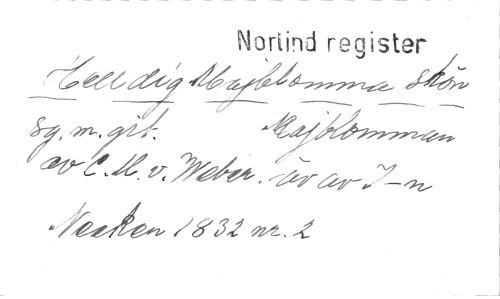 Norlind register
Hell dig Majblomma skön
sg. m. git. Majblomman
av C. M. v. Weber. öv av I-n
Necken 1832 nr. 2